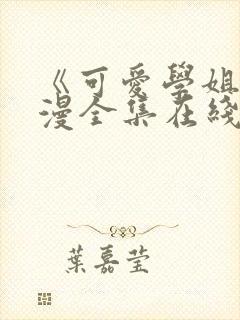 《可愛學姐
漫全集在綫
葉嘉莹